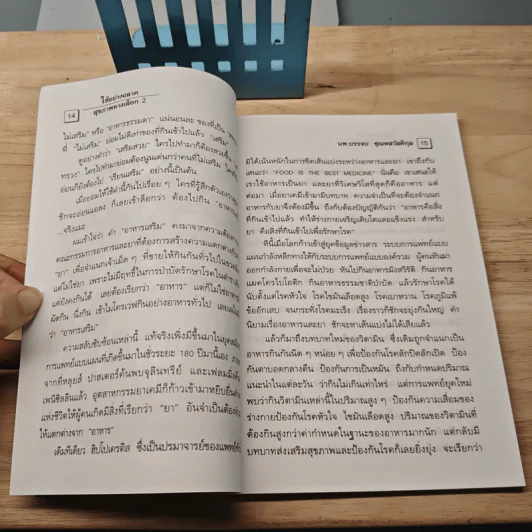 ใช้อย่างฉลาด
14 สุขภาพทางเลือก 2
ไม่เสริม" หรือ "อาหารธรรมดา" แน่นอนละ ของที่เป็น
ที่ "ไม่เสริม" ย่อมไม่ดีเท่าของที่กินเข้าไปแล้ว "เสริม"
ดูอย่างคำว่า "เสริมสวย" ใครไปทำมาก็ต้องสวยขึ้น
ทรวง" ใครไปทำมาย่อมต้องนูนเด่นกว่าคนที่ไม่เสริม
ย่อนก็ยังต้องไป "เขียนเสริม" อย่างนี้เป็นต้น
เมื่อยอมให้ใช้คำนี้กันไปเรื่อย ๆ ใครที่รู้สึกตัวเอง
ชักจะอ่อนแอลง ก็เลยเข้าล็อกว่า ต้องไปกิน "อาหาร
...จริงแมะ
ผมเข้าใจว่า คำ "อาหารเสริม" คงมาจากความต้อง
คณะกรรมการอาหารและยาที่ต้องการสร้างความแตกต่าง
"ยา" เพื่อจำแนกเจ้าเม็ด ๆ ที่ขายให้กินกันทั่วไปใน
แต่ไม่ใช่ยา เพราะไม่มีฤทธิ์ในการบำบัดรักษาโรคในตำรา
แต่ยังคงกินได้ เลยต้องเรียกว่า "อาหาร" แต่ก็ไม่ใช่อาหาร
ผัดกิน นึ่งกิน เข้าไมโครเวฟกินอย่างอาหารทั่วไป เลย
ว่า "อาหารเสริม"
ความสลับซับซ้อนเหล่านี้ แท้จริงเพิ่งมีขึ้นมาในยุคสมัย
การแพทย์แบบแผนที่เกิดขึ้นมาในชั่วระยะ 180 ปีมานี้เอง
จากที่หลุยส์ ปาสเตอร์ค้นพบจุลินทรีย์ และเฟลมมิ่ง
เพนิซิลลินแล้ว อุตสาหกรรมยาเคมีก็ก้าวเข้ามาหยิบยื่น
แห่งชีวิตให้ผู้คนเกิดสิ่งที่เรียกว่า "ยา" อันจำเป็นต้อง
ให้แตกต่างจาก "อาหาร"
เดิมทีเดียว ฮิปโปเครติส ซึ่งเป็นปรมาจารย์ของแพทย์
นพ.บรรจบ ชุณหสวัสดิกุล 15
มิได้เน้นหนักในการขีดเส้นแบ่งระหว่างอาหารและยา เขาถึงกับ
เสนอว่า "FOOD IS THE BEST MEDICINE" นั่นคือ เขาเสนอให้
เราใช้อาหารเป็นยา และยาที่วิเศษวิโสที่สุดก็คืออาหาร แต่
ต่อมา เมื่อยาเคมีเข้ามามีบทบาท ความจำเป็นที่จะต้องจำแนก
อาหารกับยาจึงต้องมีขึ้น ถึงกับต้องบัญญัติกันว่า "อาหารคือสิ่ง
ที่กินเข้าไปแล้ว ทำให้ร่างกายเจริญเติบโตและแข็งแรง สำหรับ
ยา คือสิ่งที่กินเข้าไปเพื่อรักษาโรค"
ทีนี้เมื่อโลกก้าวเข้าสู่ยุคข้อมูลข่าวสาร ระบบการแพทย์แบบ
แผนกำลังหลีกทางให้กับระบบการแพทย์แบบองค์รวม ผู้คนหันมา
ออกกำลังกายเพื่อจะไม่ป่วย หันไปกินอาหารมังสวิรัติ กินอาหาร
แมคโครไบโอติก กินอาหารธรรมชาติบำบัด แล้วรักษาโรคได้
นับตั้งแต่โรคหัวใจ โรคไขมันเลือดสูง โรคเบาหวาน โรคภูมิแพ้
ข้ออักเสบ จนกระทั่งโรคมะเร็ง เรื่องราวก็ชักจะยุ่งกันใหญ่ คำ
นิยามเรื่องอาหารและยา ชักจะหาเส้นแบ่งไม่ได้เสียแล้ว
แล้วก็มาถึงบทบาทใหม่ของวิตามิน ซึ่งเดิมถูกจำแนกเป็น
อาหารกินกันนิด ๆ หน่อย ๆ เพื่อป้องกันโรคลักปิดลักเปิด ป้อง
กันตาบอดกลางคืน ป้องกันการเป็นหมัน ถึงกับกำหนดปริมาณ
แนะนำในแต่ละวัน ว่ากินไม่เกินเท่าไหร่ แต่การแพทย์ยุคใหม่
พบว่ากินวิตามินเหล่านี้ในปริมาณสูง ๆ ป้องกันความเสื่อมของ
ร่างกายป้องกันโรคหัวใจ ไขมันเลือดสูง ปริมาณของวิตามินที่
ต้องกินสูงกว่าค่ากำหนดในฐานะของอาหารมากนัก แต่กลับมี
บทบาทส่งเสริมสุขภาพและป้องกันโรคก็เลยยิ่งยุ่ง จะเรียกว่า